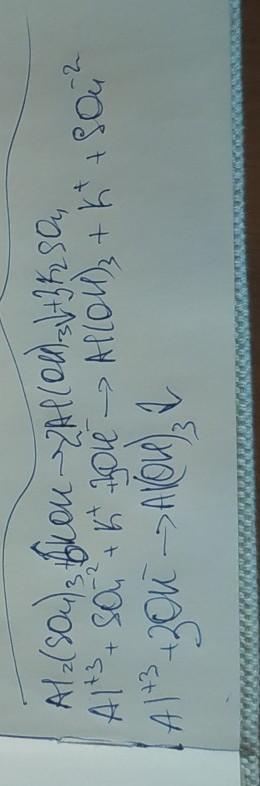 Al₂(SO₄)₃+6KOH → 2Al(OH)₃↓+3K₂SO₄
Al⁺³ + SO₄⁻² + K⁺ + 3OH⁻ → Al(OH)₃ + K⁺ + SO₄⁻²
Al⁺³ + 3OH⁻ → Al(OH)₃↓